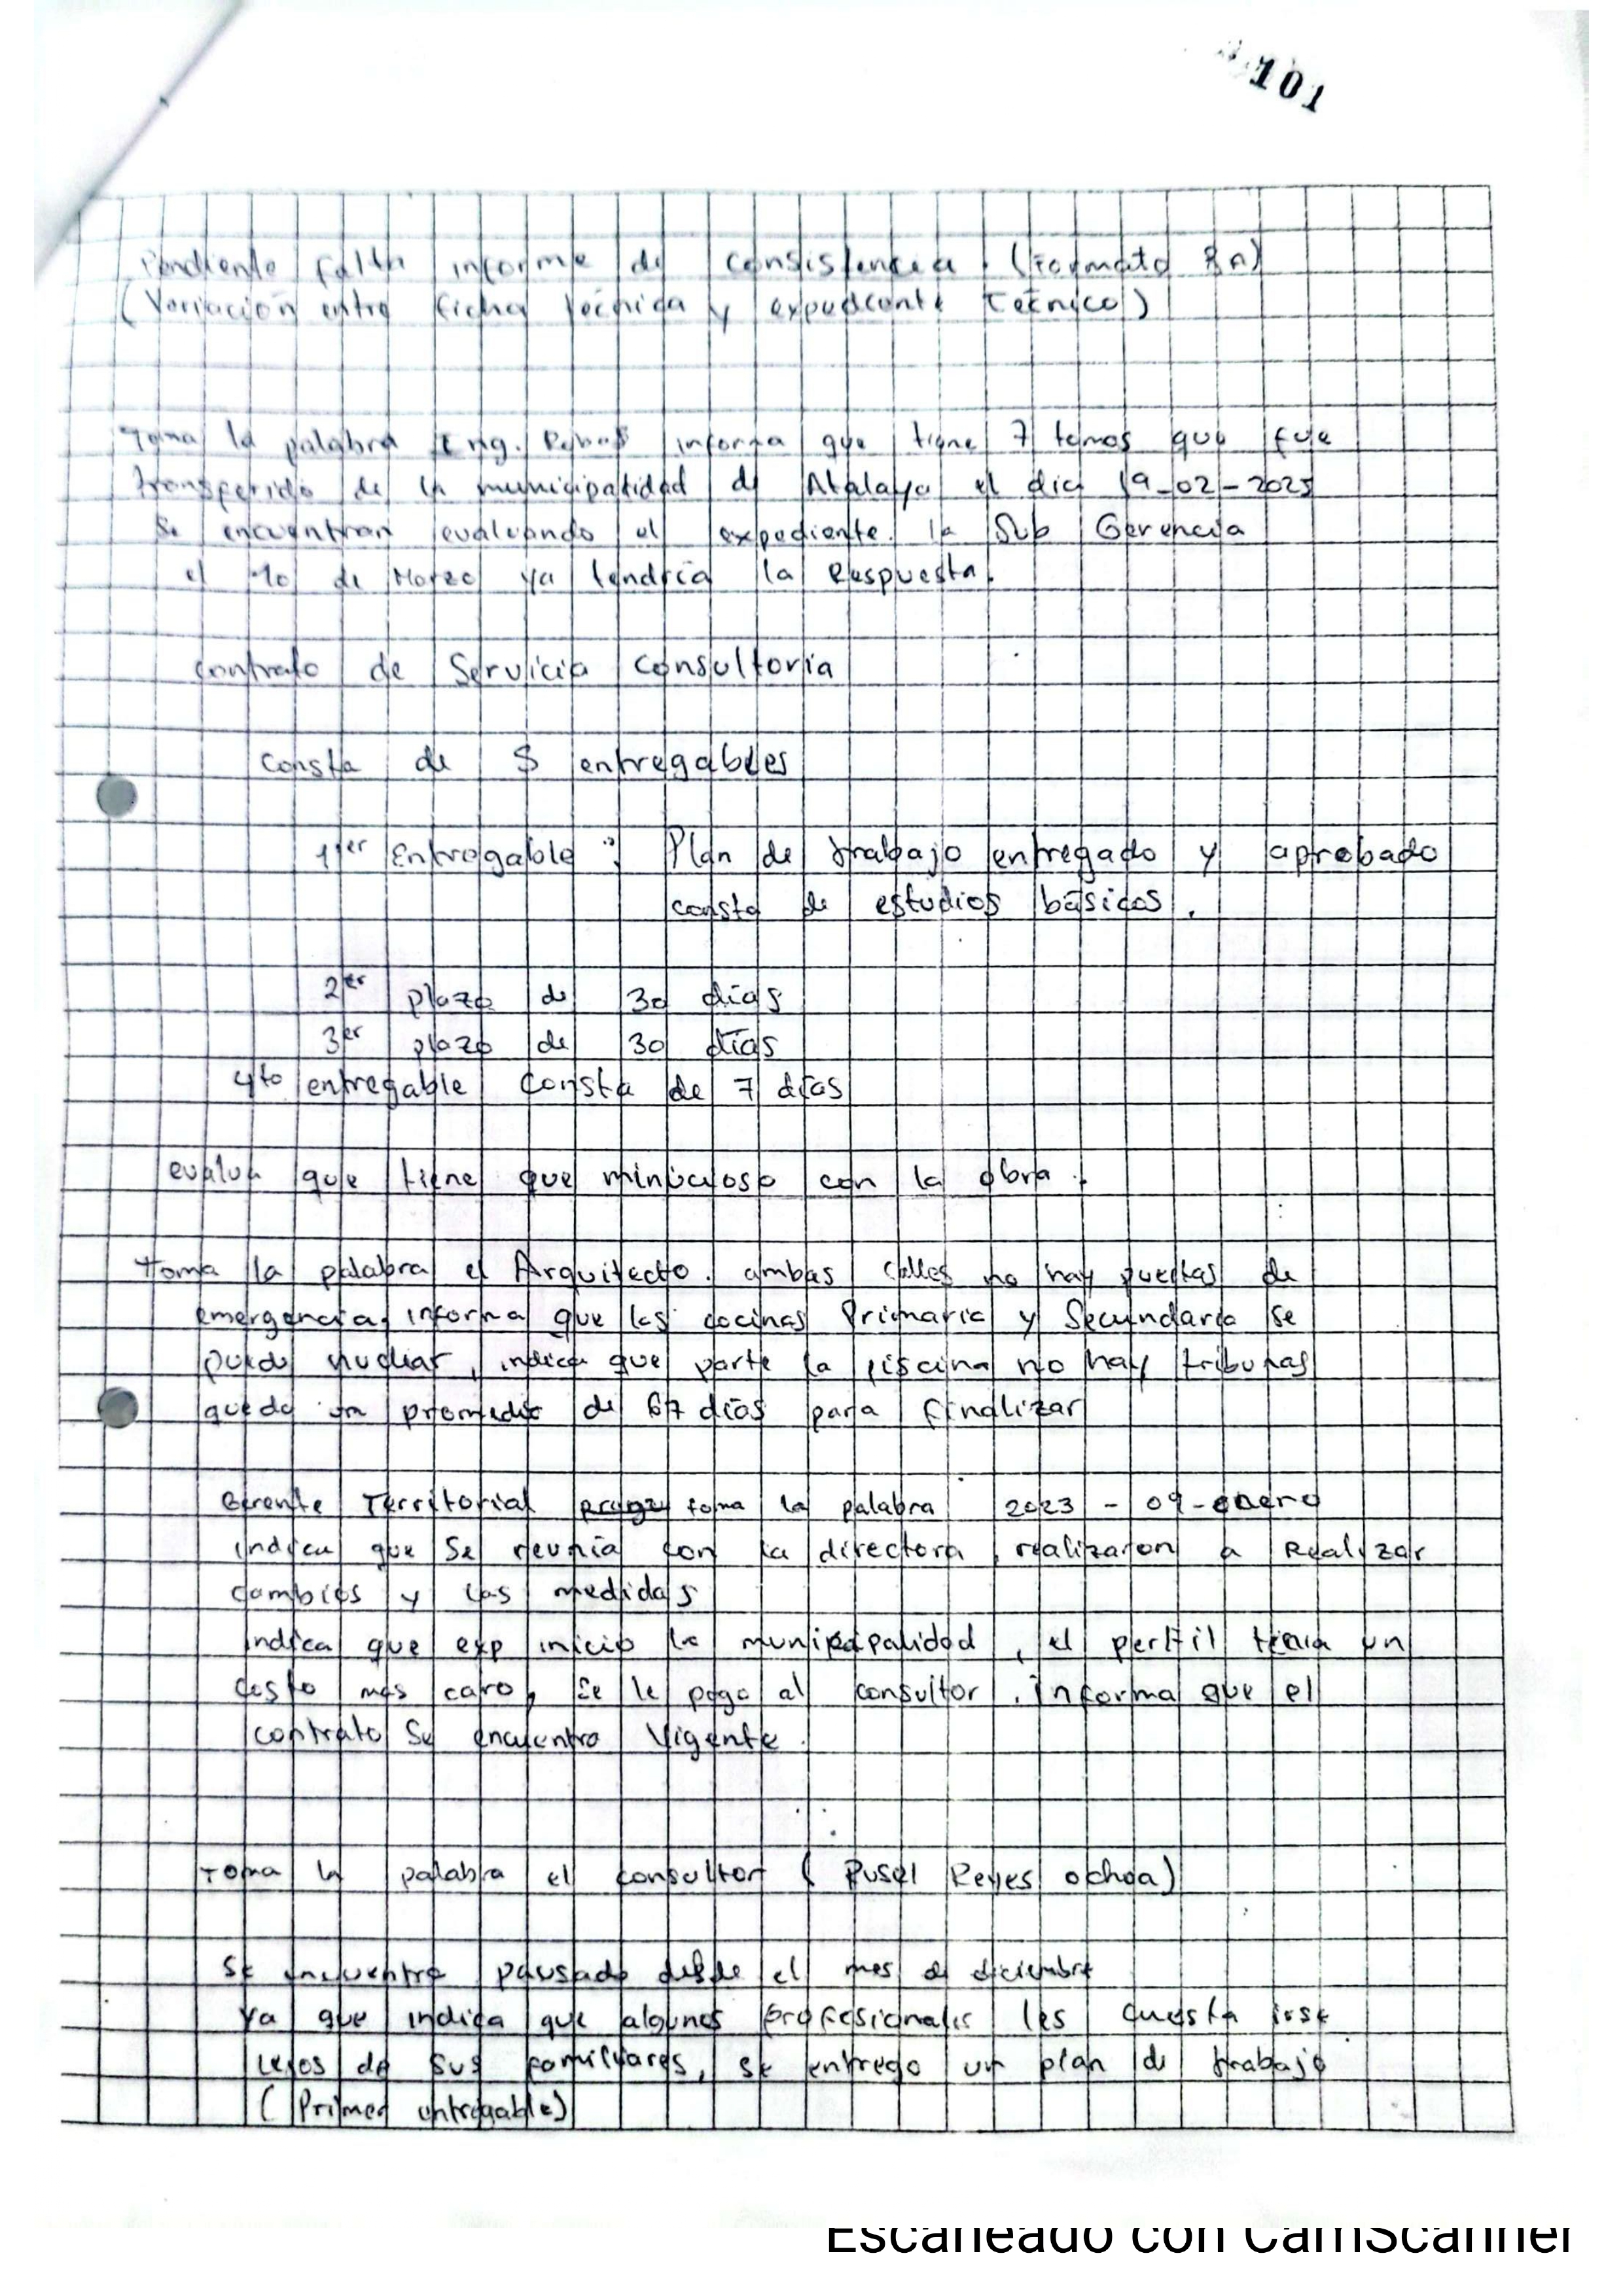 101
Pendiente falta informe de consistencia. (Formato 8A)
(Variación entre ficha técnica y expediente Técnico)
Toma la palabra Ing. informa que tiene 7 tomos que fue
transferido de la municipalidad de Atalaya el dia 19-02-2025
Se encuentran evaluando el expediente. la Sub Gerencia
el 10 de Marzo ya tendría la Respuesta.
contrato de Servicio Consultoria
Consta de 5 entregables
1er Entregable : Plan de trabajo entregado y aprobado
consta de estudios básicos.
2er plazo de 30 días
3er plazo de 30 días
4to entregable Consta de 7 días
evalua que tiene que minucioso con la obra.
toma la palabra el Arquitecto. ambas calles no hay puertas de
emergencia, informa que las cocinas Primaria y Secundaria se
puede , indica que parte la piscina no hay tribunas
queda un promedio de 67 días para finalizar
Gerente Territorial toma la palabra 2023 - 09 - enero
indica que se reunía con la directora, realizaron a Realizar
cambios y las medidas
indica que exp inicio la municipalidad, el perfil tenia un
costo mas caro, se le pago al consultor. informa que el
contrato Se encuentra Vigente.
Toma la palabra el consultor ( Reyes ochoa)
Se encuentra pausado desde el mes de diciembre
ya que indica que algunos profesionales les cuesta irse
lejos de sus familiares, se entrego un plan de trabajo
(Primer entregable)
Escaneado con CamScanner